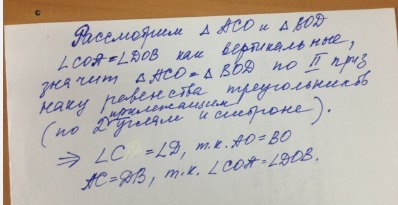 Рассмотрим △ ACO и △ BOD
∠COA=∠DOB как вертикальные,
значит △ ACO=△ BOD по II приз
наку равенства треугольников
прилежащим
(по 2 углам и стороне).
⇒ ∠C =∠D, т.к. AO=BO
AC=DB, т.к. ∠COA=∠DOB.